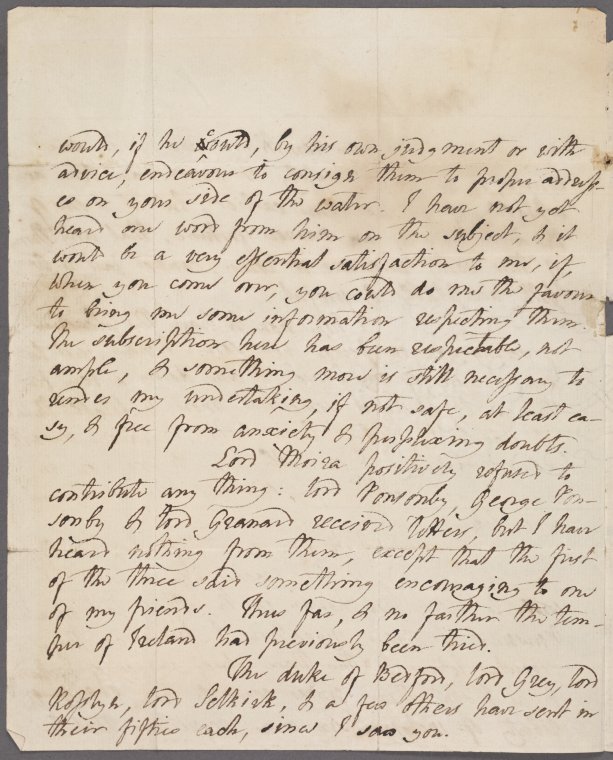 would, if he could, by his own judgment or with
advice, endeavour to consign them to proper address-
es on your side of the water. I have not yet
heard one word from him on the subject, & it
wou'd be a very essential satisfaction to me, if,
when you come over, you could do me the favour
to bring me some information respecting them.
The subscription here has been respectable, not
ample, & something more is still necessary to
render my undertaking, if not safe, at least ea-
sy, & free from anxiety & perplexing doubts.
Lord Moira positively refused to
contribute any thing: lord Ponsonby, George Pon-
sonby & lord Granard received letters, but I have
heard nothing from them, except that the first
of the three said something encouraging to one
of my friends. Thus far, & no farther the tem-
per of Ireland had previously been tried.
The duke of Bedford, lord Grey, lord
Rosslyn, lord Selkirk, & a few others have sent in
their fifties each, since I saw you.